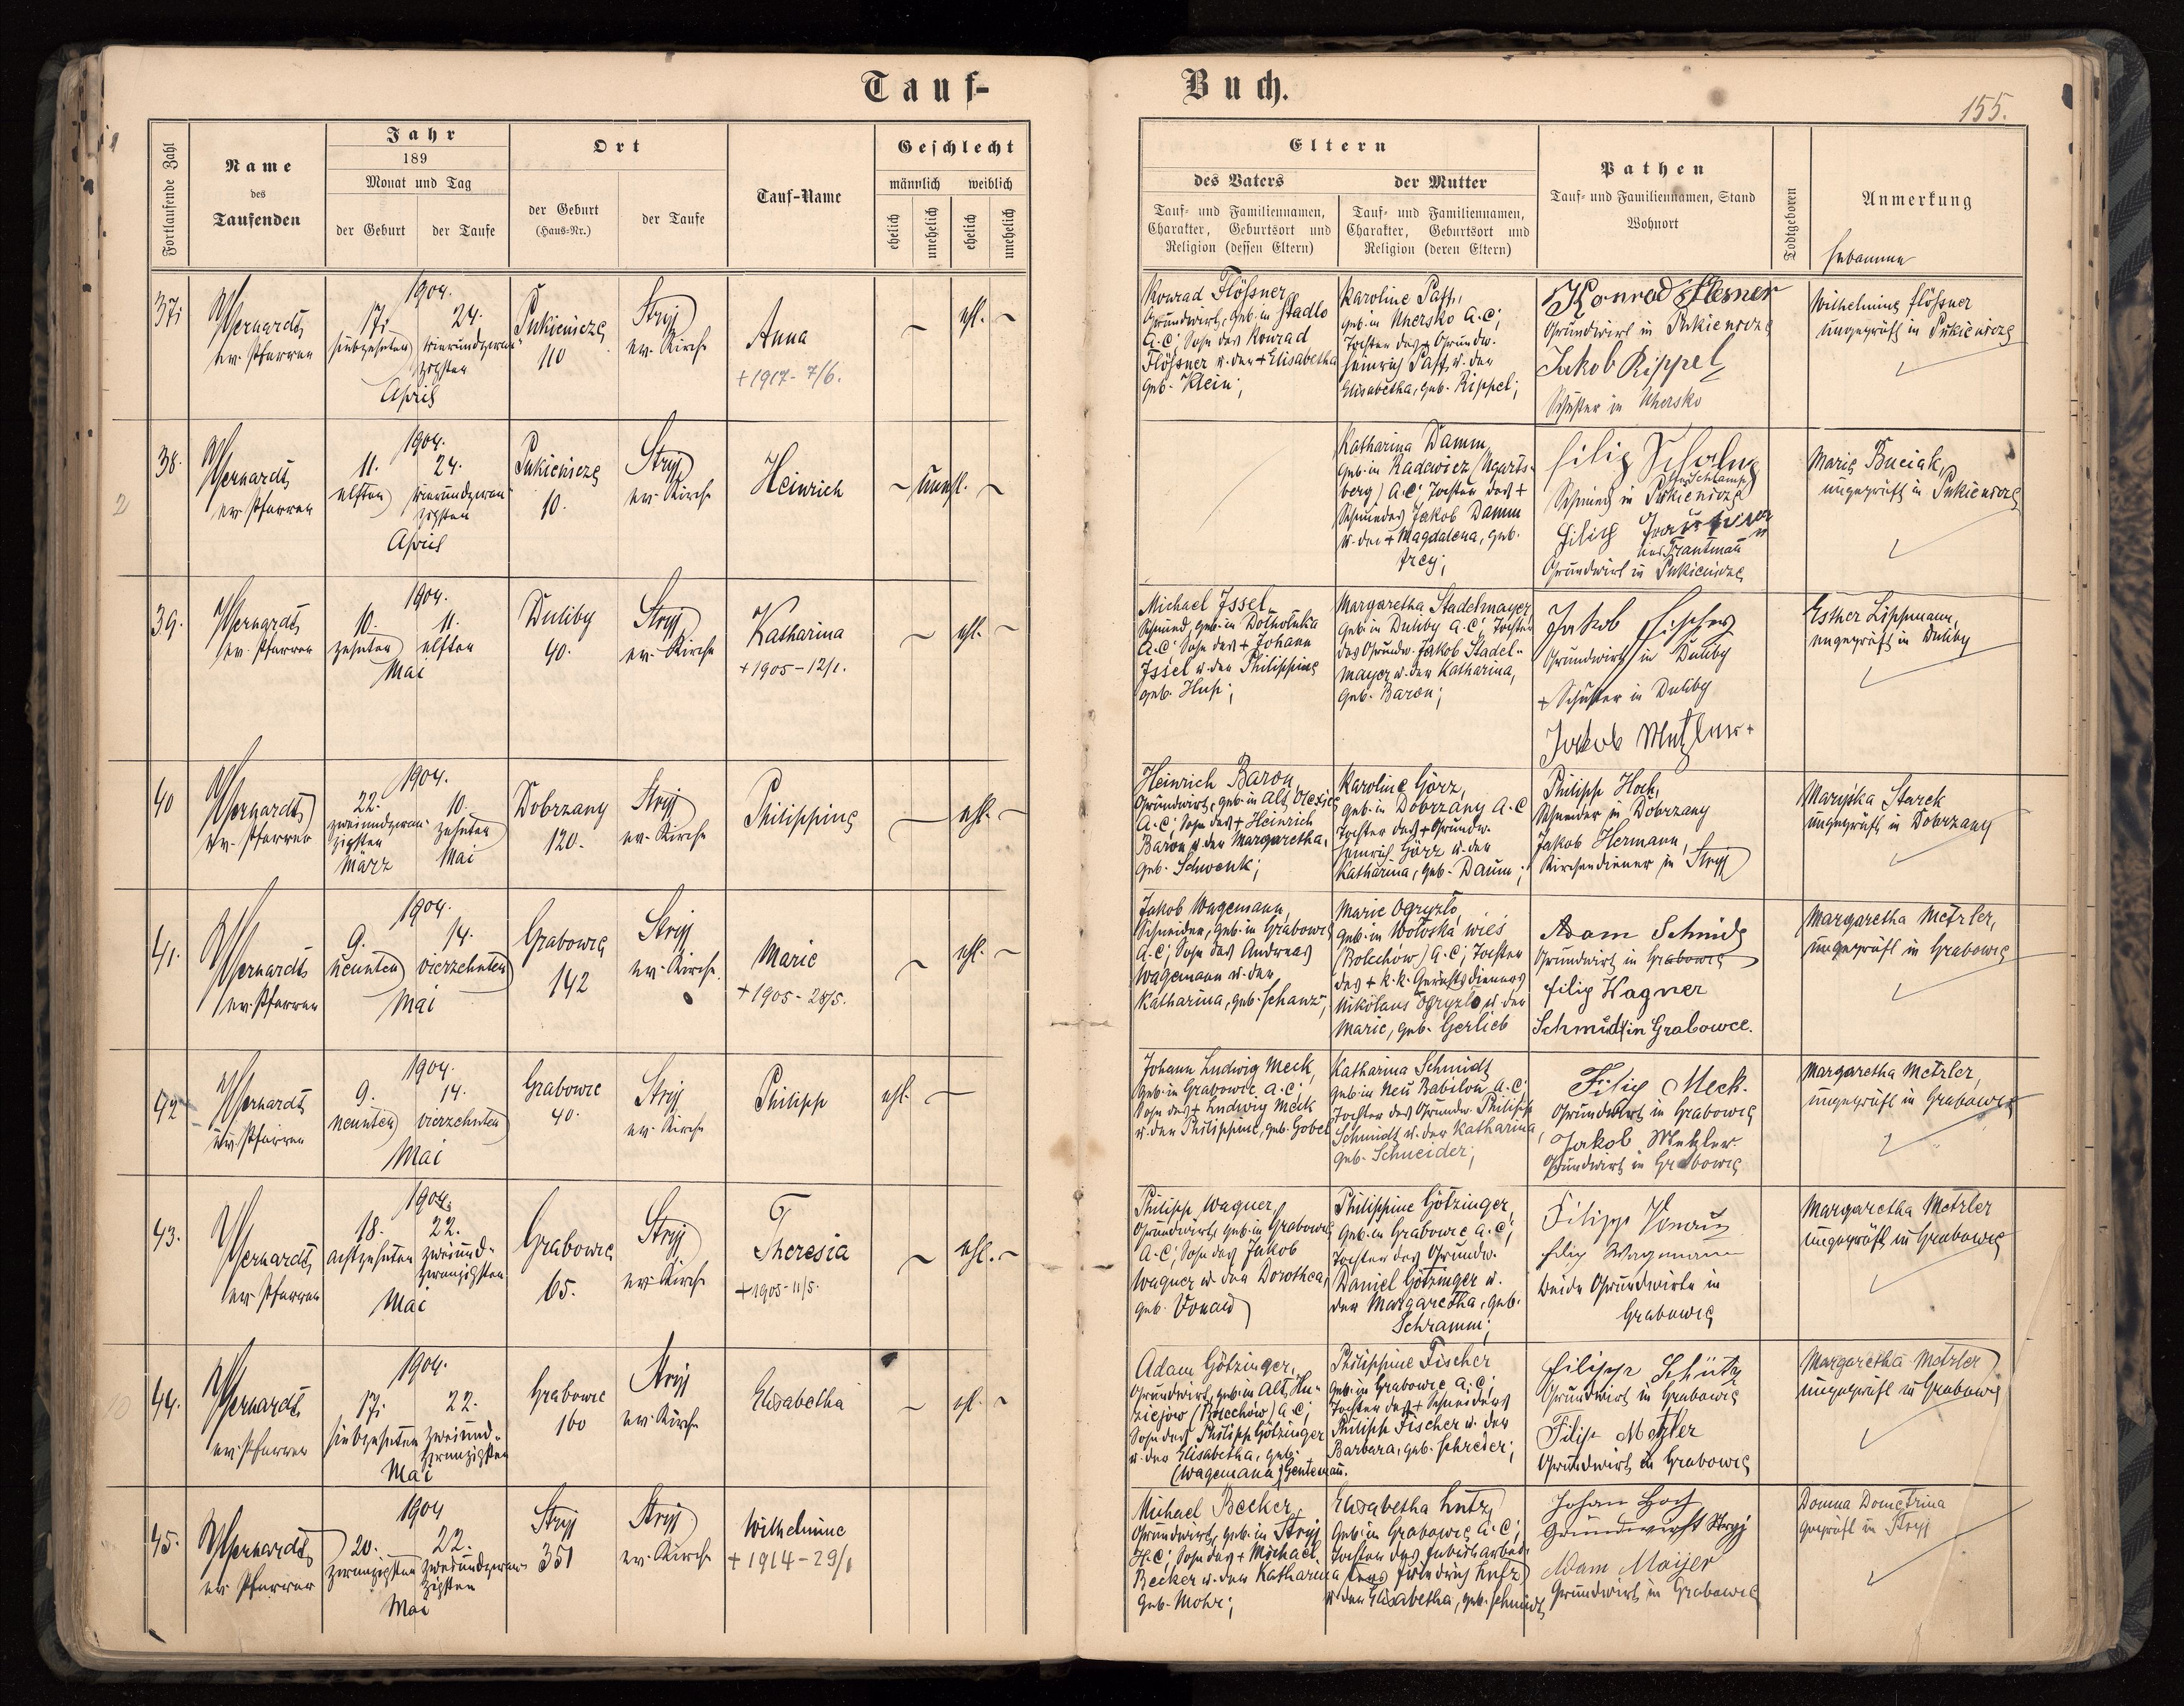 Tauf-
Buch.
155.
Fortlaufende Zahl
Name
des
Taufenden
Jahr
189
Monat und Tag
der Geburt
der Taufe
Ort
der Geburt
(Haus-Nr.)
der Taufe
Tauf-Name
Geschlecht
männlich
weiblich
ehelich
unehelich
ehelich
unehelich
Eltern
des Vaters
der Mutter
Tauf- und Familiennamen,
Charakter, Geburtsort und
Religion (dessen Eltern)
Tauf- und Familiennamen,
Charakter, Geburtsort und
Religion (deren Eltern)
Pathen
Tauf- und Familiennamen, Stand
Wohnort
Todtgeboren
Anmerkung
Hebamme
37.
ev. Pfarrer
1904.
17.
siebzehnten
24.
vierundzwan-
zigsten
April
Pukienicze
110
Stryj
ev. Kirche
Anna
+ 1917- 7/6.
ehl.
Konrad Flössner,
Grundwirt, geb. in Stadlo
A.C; Sohn des Konrad
Flössner u. der + Elisabetha
geb. Klein;
Karoline Paff,
geb. in Uhersko A.C;
Tochter des + Grundw.
Heinrich Paff, u. der
Elisabetha, geb. Rippel;
Konrad Flesner
Grundwirt in Pukienicze
Jakob Rippel
Schuster in Uhersko
Wilhelmine Flössner
ungeprüft in Pukienicze
38.
ev. Pfarrer
1904.
11.
elften
24.
vierundzwan-
zigsten
April
Pukienicze
10.
Stryj
ev. Kirche
Heinrich
unehl.
Katharina Damm,
geb. in Kadewicz (Ugarts-
berg) A.C; Tochter des +
Schmiedes Jakob Damm
u. der + Magdalena, geb.
Frey;
Schmied in Pukienicze
Trautman
Grundwirt in Pukienicze
Marie Buciak,
ungeprüft in Pukienicze
39.
ev. Pfarrer
1904.
10.
zehnten
11.
elften
Mai
Duliby
40.
Stryj
ev. Kirche
Katharina
+ 1905-12/1.
ehl.
Michael Issel,
Schmied, geb. in Dolholuka
A.C; Sohn des + Johann
Issel u. der Philippine
geb. Hup;
Margaretha Stadelmayer
geb. in Duliby A.C; Tochter
des Grundw. Jakob Stadel-
mayer u. der Katharina,
geb. Baron;
Jakob Fischer
Grundwirt in Duliby
+ Schuster in Duliby
Jakob Metzler +
Esther Lippmann,
ungeprüft in Duliby
40
ev. Pfarrer
1904.
22.
zweiundzwan-
zigsten
März
10.
zehnten
Mai
Dobrzany
120.
Stryj
ev. Kirche
Philippine
ehl.
Heinrich Baron,
Grundwirt, geb. in Alt Olexice
A.C; Sohn des + Heinrich
Baron u. der Margaretha,
geb. Schwenk;
Karoline Görz,
geb. in Dobrzany A.C
Tochter des + Grundw.
Heinrich Görz u. der
Katharina, geb. Daum;
Philipp Hock,
Schneider in Dobrzany
Jakob Hermann,
Kirchendiener in Stryj
Maryska Starek
ungeprüft in Dobrzany
41.
ev. Pfarrer
1904.
9.
neunten
14.
vierzehnten
Mai
Grabowce
142
Stryj
ev. Kirche
Marie
+ 1905- 28/5.
ehl.
Jakob Wagemann,
Schneider, geb. in Grabowce
A.C; Sohn des Andreas
Wagemann u. der
Katharina, geb. Schanz;
Marie Ogryzlo,
geb. in Woloska wies
(Bolechów) A.C; Tochter
des + k.k. Gerichtsdieners
Nikolaus Ogryzlo u. der
Marie, geb. Gerlieb
Adam Schmidt
Grundwirt in Grabowce
Filip Wagner
Schmidt in Grabowce.
Margaretha Metzler,
ungeprüft in Grabowce
42
ev. Pfarrer
1904.
9.
neunten
14.
vierzehnten
Mai
Grabowce
40.
Stryj
ev. Kirche
Philipp
ehl.
Johann Ludwig Meck,
geb. in Grabowce A.C;
Sohn des + Ludwig Meck
u. der Philippine, geb. Göbel
Katharina Schmidt
geb. in Neu Babilon A.C;
Tochter des Grundw. Philipp
Schmidt u. der Katharina,
geb. Schneider;
Filip Meck.
Grundwirt in Grabowce
Jakob Metzler
Grundwirt in Grabowce
Margaretha Metzler,
ungeprüft in Grabowce
43.
ev. Pfarrer
1904.
18.
achtzehnten
22.
zweiund-
zwanzigsten
Mai
Grabowce
65.
Stryj
ev. Kirche
Theresia
+ 1905-11/5.
ehl.
Philipp Wagner,
Grundwirt, geb. in Grabowce
A.C; Sohn des Jakob
Wagner u. der Dorothea,
geb. Vonau
Philippine Götzinger,
geb. in Grabowce A.C;
Tochter des Grundw.
Daniel Götzinger u.
der Margaretha, geb.
Schramm;
Filipp Vonau
Filip Wagemann
beide Grundwirte in
Grabowce
Margaretha Metzler
ungeprüft in Grabowce
44.
ev. Pfarrer
1904.
17.
siebzehnten
22.
zweiund-
zwanzigsten
Mai
Grabowce
160
Stryj
ev. Kirche
Elisabetha
ehl.
Adam Götzinger,
Grundwirt, geb. in Alt Hu-
ziejow (Bolechów) A.C;
Sohn des Philipp Götzinger
u. der Elisabetha, geb.
(Wagemann) Gentemann.
Philippine Fischer
geb. in Grabowce A.C;
Tochter des + Schneiders
Philipp Fischer u. der
Barbara, geb. Schreder;
Filipp Schütz
Grundwirt in Grabowce
Filip Metzler
Grundwirt in Grabowce
Margaretha Metzler
ungeprüft in Grabowce
45.
ev. Pfarrer
1904
20.
zwanzigsten
22.
zweiundzwan-
zigsten
Mai
Stryj
351
Stryj
ev. Kirche
Wilhelmine
+ 1914-29/1
Michael Becker,
Grundwirt, geb. in Stryj
H.C; Sohn des + Michael
Becker u. der Katharina
geb. Mohr;
Elisabetha Lutz,
geb. in Grabowce A.C;
Tochter des Fabriksarbei-
ters Friedrich Lutz
u. der Elisabetha, geb. Schmidt
Johan Hoch
Grundwirt Stryj
Adam Maijer
Grundwirt in Grabowce
Domna Dometrina
geprüft in Stryj